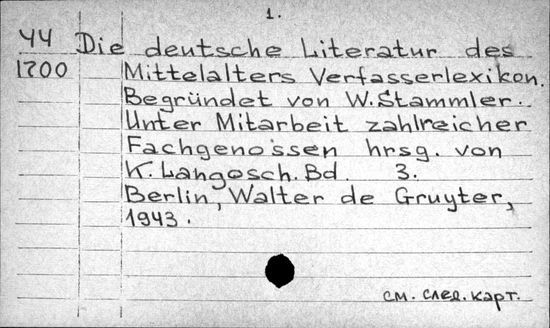 1.
44 Die deutsche Literatur des
1200 Mittelalters Verfasserlexikon.
Begründet von W. Stammler.
Unter Mitarbeit zahlreicher
Fachgenossen hrsg. von
K. Langosch. Bd. 3.
Berlin, Walter de Gruyter,
1943.
см. след. карт.